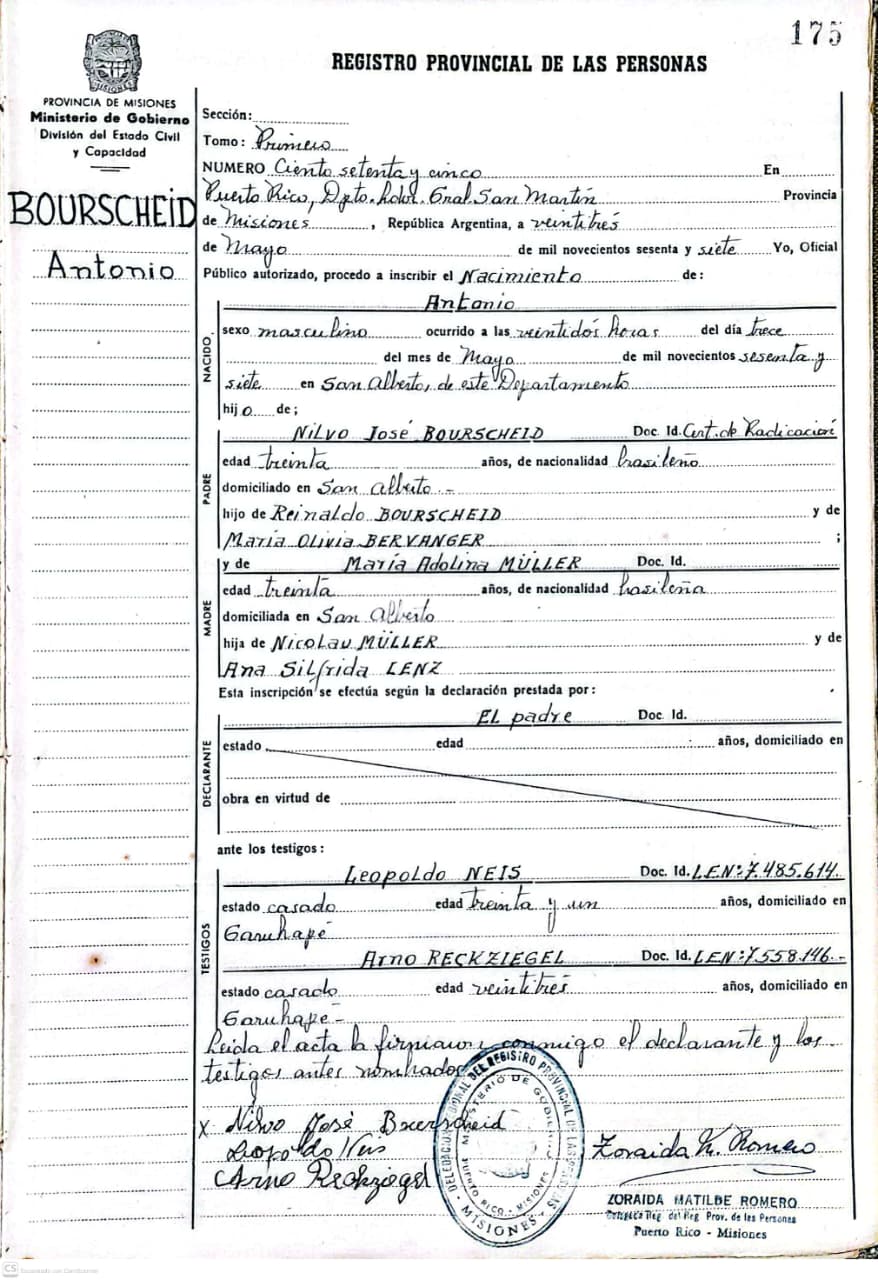 175
REGISTRO PROVINCIAL DE LAS PERSONAS
PROVINCIA DE MISIONES
Ministerio de Gobierno
División del Estado Civil
y Capacidad
BOURSCHEID
Antonio
Sección:
Tomo: Primero
NUMERO Ciento setenta y cinco En
Puerto Rico, Dpto. Ldor. Gral. San Martín Provincia
de Misiones, República Argentina, a veintitrés
de Mayo de mil novecientos sesenta y siete Yo, Oficial
Público autorizado, procedo a inscribir el Nacimiento de:
NACIDO
Antonio
sexo masculino ocurrido a las veintidós horas del día trece
del mes de Mayo de mil novecientos sesenta y
siete en San Alberto, de este Departamento
hijo de;
PADRE
Nilvo José BOURSCHEID Doc. Id. Cert. de Radicación
edad treinta años, de nacionalidad brasileño
domiciliado en San Alberto.-
hijo de Reinaldo BOURSCHEID y de
Maria Olivia BERVANGER ;
MADRE
y de María Adolina MÜLLER Doc. Id.
edad treinta años, de nacionalidad brasileña
domiciliada en San Alberto
hija de Nicolau MÜLLER y de
Ana Silfrida LENZ
Esta inscripción se efectúa según la declaración prestada por:
DECLARANTE
El padre Doc. Id.
estado edad años, domiciliado en
obra en virtud de
ante los testigos:
TESTIGOS
Leopoldo NEIS Doc. Id. LEN: 7.485.614.
estado casado edad treinta y un años, domiciliado en
Garuhapé
Arno RECKZIEGEL Doc. Id. LEN: 7.558.146.-
estado casado edad veintitrés años, domiciliado en
Garuhapé-
Leida el acta la firman conmigo el declarante y los
testigos antes nombrados
x Nilvo José Bourscheid
Leopoldo Neis
Arno Reckziegel
DEL REGISTRO PROVINCIAL DE LAS PERSONAS
MINISTERIO DE GOBIERNO
PUERTO RICO - MISIONES
MISIONES
Zoraida M. Romero
ZORAIDA MATILDE ROMERO
Reg. del Reg. Prov. de las Personas
Puerto Rico - Misiones
CS Escaneado con CamScanner